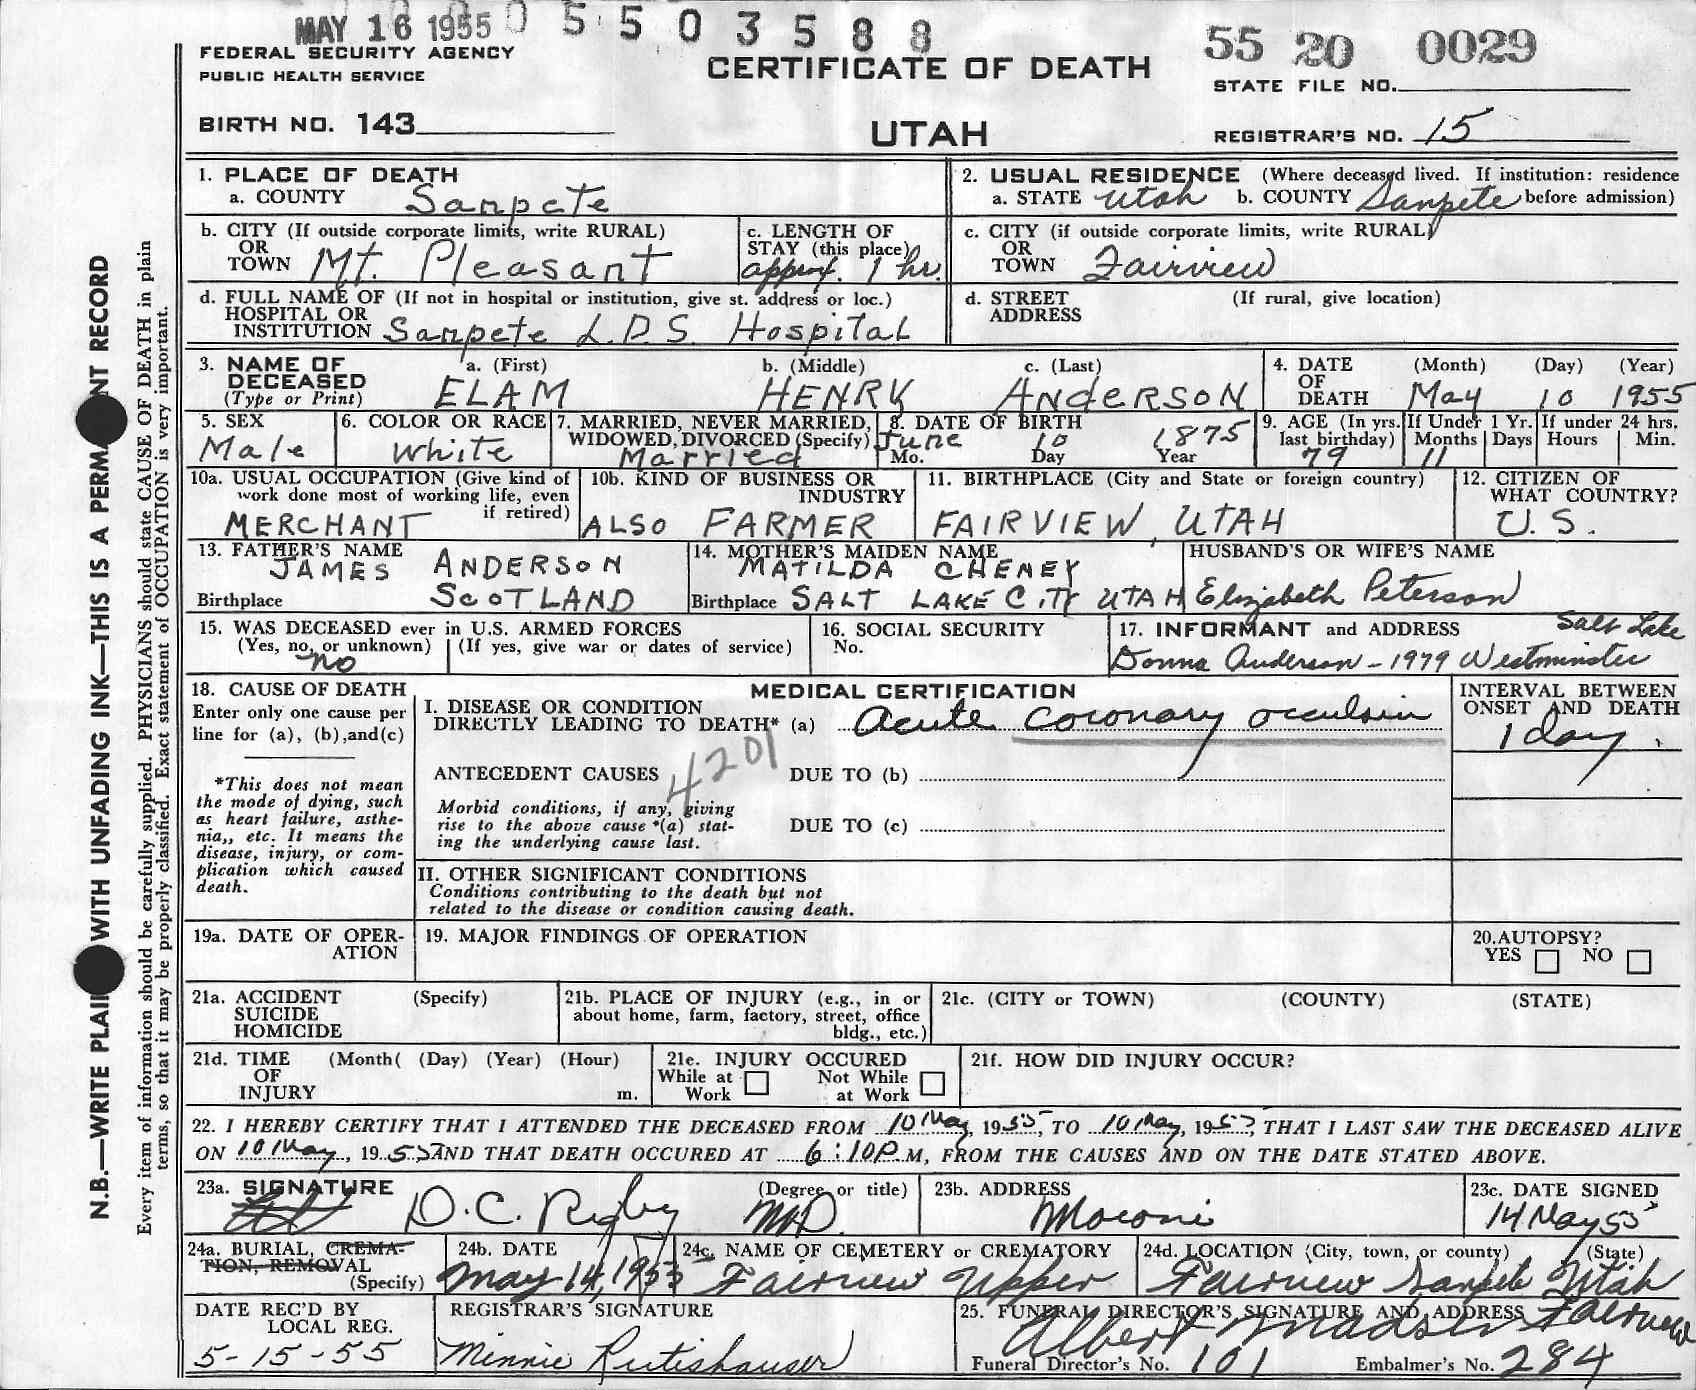 MAY 16 1955 0 5 5 0 3 5 8 8
55 20 0029
FEDERAL SECURITY AGENCY
PUBLIC HEALTH SERVICE
CERTIFICATE OF DEATH
STATE FILE NO.
BIRTH NO. 143
UTAH
REGISTRAR'S NO. 15
N.B.—WRITE PLAI WITH UNFADING INK—THIS IS A PERMA NT RECORD
Every item of information should be carefully supplied. PHYSICIANS should state CAUSE OF DEATH in plain
terms, so that it may be properly classified. Exact statement of OCCUPATION is very important.
1. PLACE OF DEATH
a. COUNTY Sanpete
2. USUAL RESIDENCE (Where deceased lived. If institution: residence
a. STATE Utah b. COUNTY Sanpete before admission)
b. CITY (If outside corporate limits, write RURAL)
OR
TOWN Mt. Pleasant
c. LENGTH OF
STAY (this place)
approx. 1 hr.
c. CITY (if outside corporate limits, write RURAL)
OR
TOWN Fairview
d. FULL NAME OF (If not in hospital or institution, give st. address or loc.)
HOSPITAL OR
INSTITUTION Sanpete L.D.S. Hospital
d. STREET (If rural, give location)
ADDRESS
3. NAME OF a. (First) b. (Middle) c. (Last)
DECEASED
(Type or Print) ELAM HENRY ANDERSON
4. DATE (Month) (Day) (Year)
OF
DEATH May 10 1955
5. SEX
Male
6. COLOR OR RACE
White
7. MARRIED, NEVER MARRIED,
WIDOWED, DIVORCED (Specify)
Married
8. DATE OF BIRTH
June 10 1875
Mo. Day Year
9. AGE (In yrs. If Under 1 Yr. If under 24 hrs.
last birthday) Months Days Hours Min.
79 11
10a. USUAL OCCUPATION (Give kind of
work done most of working life, even
if retired)
MERCHANT
10b. KIND OF BUSINESS OR
INDUSTRY
ALSO FARMER
11. BIRTHPLACE (City and State or foreign country)
FAIRVIEW, UTAH
12. CITIZEN OF
WHAT COUNTRY?
U.S.
13. FATHER'S NAME
JAMES ANDERSON
Birthplace SCOTLAND
14. MOTHER'S MAIDEN NAME
MATILDA CHENEY
Birthplace SALT LAKE CITY UTAH
HUSBAND'S OR WIFE'S NAME
Elizabeth Peterson
15. WAS DECEASED ever in U.S. ARMED FORCES
(Yes, no, or unknown) (If yes, give war or dates of service)
no
16. SOCIAL SECURITY
No.
17. INFORMANT and ADDRESS Salt Lake
Donna Anderson - 1979 Westminster
18. CAUSE OF DEATH
Enter only one cause per
line for (a), (b),and(c)
*This does not mean
the mode of dying, such
as heart failure, asthe-
nia,, etc. It means the
disease, injury, or com-
plication which caused
death.
MEDICAL CERTIFICATION
I. DISEASE OR CONDITION
DIRECTLY LEADING TO DEATH* (a) acute coronary occulsin
4201
ANTECEDENT CAUSES DUE TO (b)
Morbid conditions, if any, giving
rise to the above cause *(a) stat-
ing the underlying cause last.
DUE TO (c)
INTERVAL BETWEEN
ONSET AND DEATH
1 day.
II. OTHER SIGNIFICANT CONDITIONS
Conditions contributing to the death but not
related to the disease or condition causing death.
19a. DATE OF OPER-
ATION
19. MAJOR FINDINGS OF OPERATION
20. AUTOPSY?
YES NO
21a. ACCIDENT (Specify)
SUICIDE
HOMICIDE
21b. PLACE OF INJURY (e.g., in or
about home, farm, factory, street, office
bldg., etc.)
21c. (CITY or TOWN) (COUNTY) (STATE)
21d. TIME (Month( (Day) (Year) (Hour)
OF
INJURY m.
21e. INJURY OCCURED
While at Not While
Work at Work
21f. HOW DID INJURY OCCUR?
22. I HEREBY CERTIFY THAT I ATTENDED THE DECEASED FROM 10 May, 1955, TO 10 May, 1955, THAT I LAST SAW THE DECEASED ALIVE
ON 10 May, 1955 AND THAT DEATH OCCURED AT 6:10P.M, FROM THE CAUSES AND ON THE DATE STATED ABOVE.
23a. SIGNATURE (Degree or title)
D.C. Rigby MD.
23b. ADDRESS
Moroni
23c. DATE SIGNED
14 May 55
24a. BURIAL, CREMA-
TION, REMOVAL
(Specify)
24b. DATE
May 14, 1955
24c. NAME OF CEMETERY or CREMATORY
Fairview Upper
24d. LOCATION (City, town, or county) (State)
Fairview Sanpete Utah
DATE REC'D BY
LOCAL REG.
5-15-55
REGISTRAR'S SIGNATURE
Minnie Rutishauser
25. FUNERAL DIRECTOR'S SIGNATURE AND ADDRESS Fairview
Albert Madsen
Funeral Director's No. 101 Embalmer's No. 284